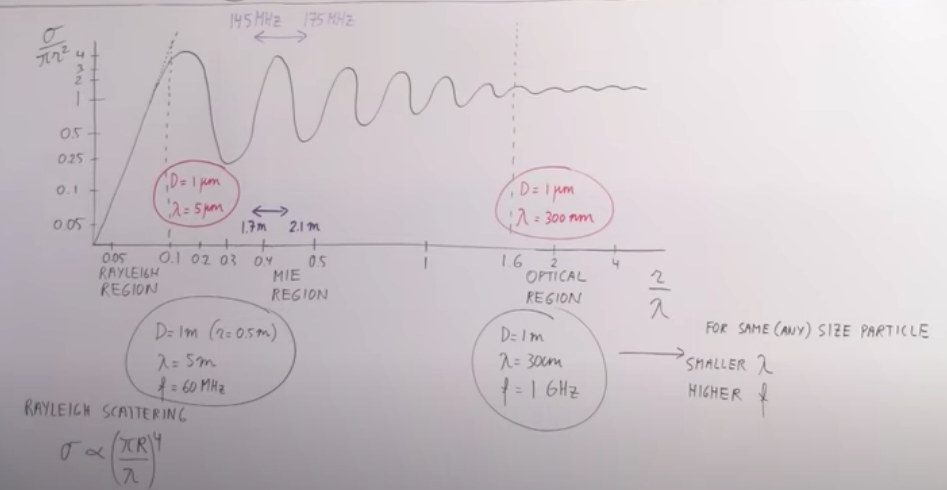 145MHz 175MHz
σ/πr²
4
3
2
1
0.5
0.25
0.1
0.05
D = 1 μm
λ = 5μm
1.7m 2.1m
D = 1μm
λ = 300 nm
0.05 0.1 0.2 0.3 0.4 0.5 1 1.6 2 4
r/λ
RAYLEIGH
REGION
MIE
REGION
OPTICAL
REGION
D = 1m (r = 0.5m)
λ = 5m
f = 60 MHz
D = 1m
λ = 30cm
f = 1 GHz
FOR SAME (ANY) SIZE PARTICLE
SMALLER λ
HIGHER f
RAYLEIGH SCATTERING
σ ∝ (πR/λ)⁴